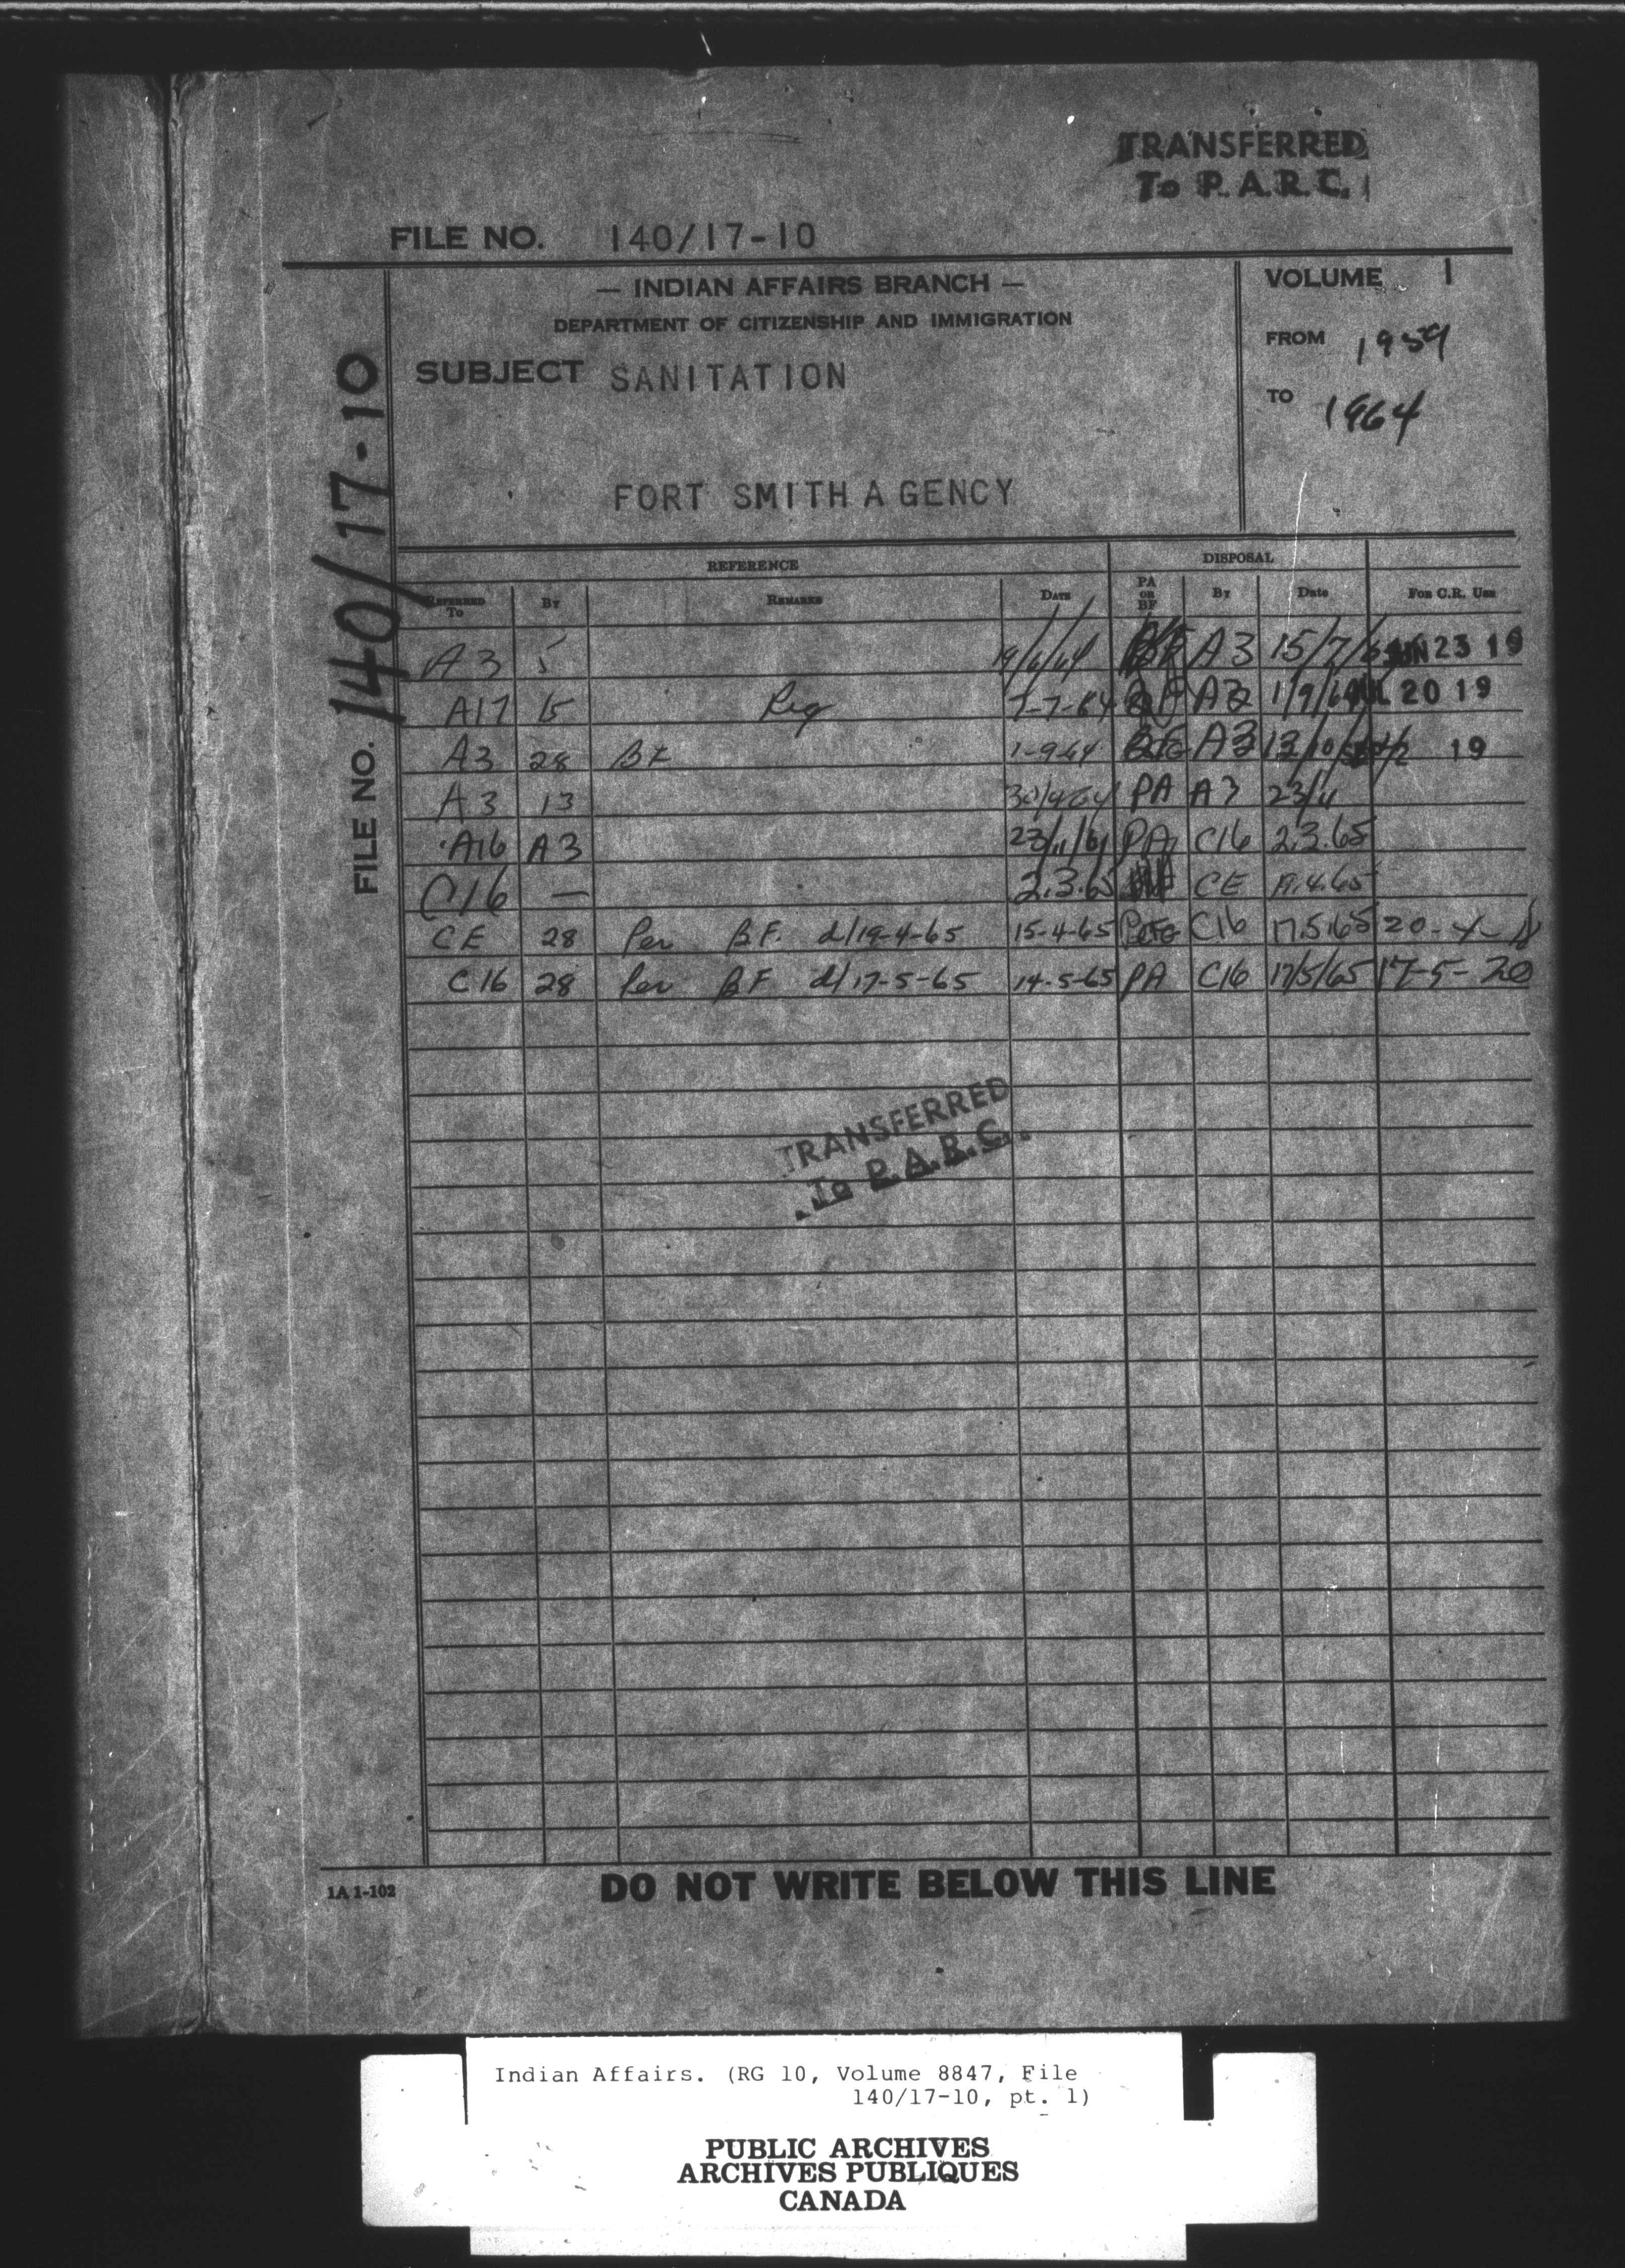 TRANSFERRED
To P.A.R.C.
FILE NO. 140/17-10
— INDIAN AFFAIRS BRANCH —
DEPARTMENT OF CITIZENSHIP AND IMMIGRATION
SUBJECT SANITATION
FORT SMITH AGENCY
VOLUME 1
FROM 1959
TO 1964
FILE NO. 140/17-10
REFERENCE DISPOSAL
REFERRED To BY REMARKS DATE PA OR BF By Date FOR C.R. USE
A3 5 19/6/64 BF A3 15/7/ JUN 23 19
A17 15 Reg 7-7-64 BF A3 1/9/64 JUL 20 19
A3 28 BF 1-9-64 A3 SEP 19
A3 13 30/9/64 PA A3 23/11
A16 A3 23/11/64 PA C16 2.3.65
C16 — 2.3.65 CE 19.4.65
CE 28 Per B.F. d/19-4-65 15-4-65 C16 17.5.65 20-4-
C16 28 Per BF d/17-5-65 14-5-65 PA C16 17/5/65 17-5-20
TRANSFERRED
To P.A.R.C.
1A 1-102
DO NOT WRITE BELOW THIS LINE
Indian Affairs. (RG 10, Volume 8847, File
140/17-10, pt. 1)
PUBLIC ARCHIVES
ARCHIVES PUBLIQUES
CANADA